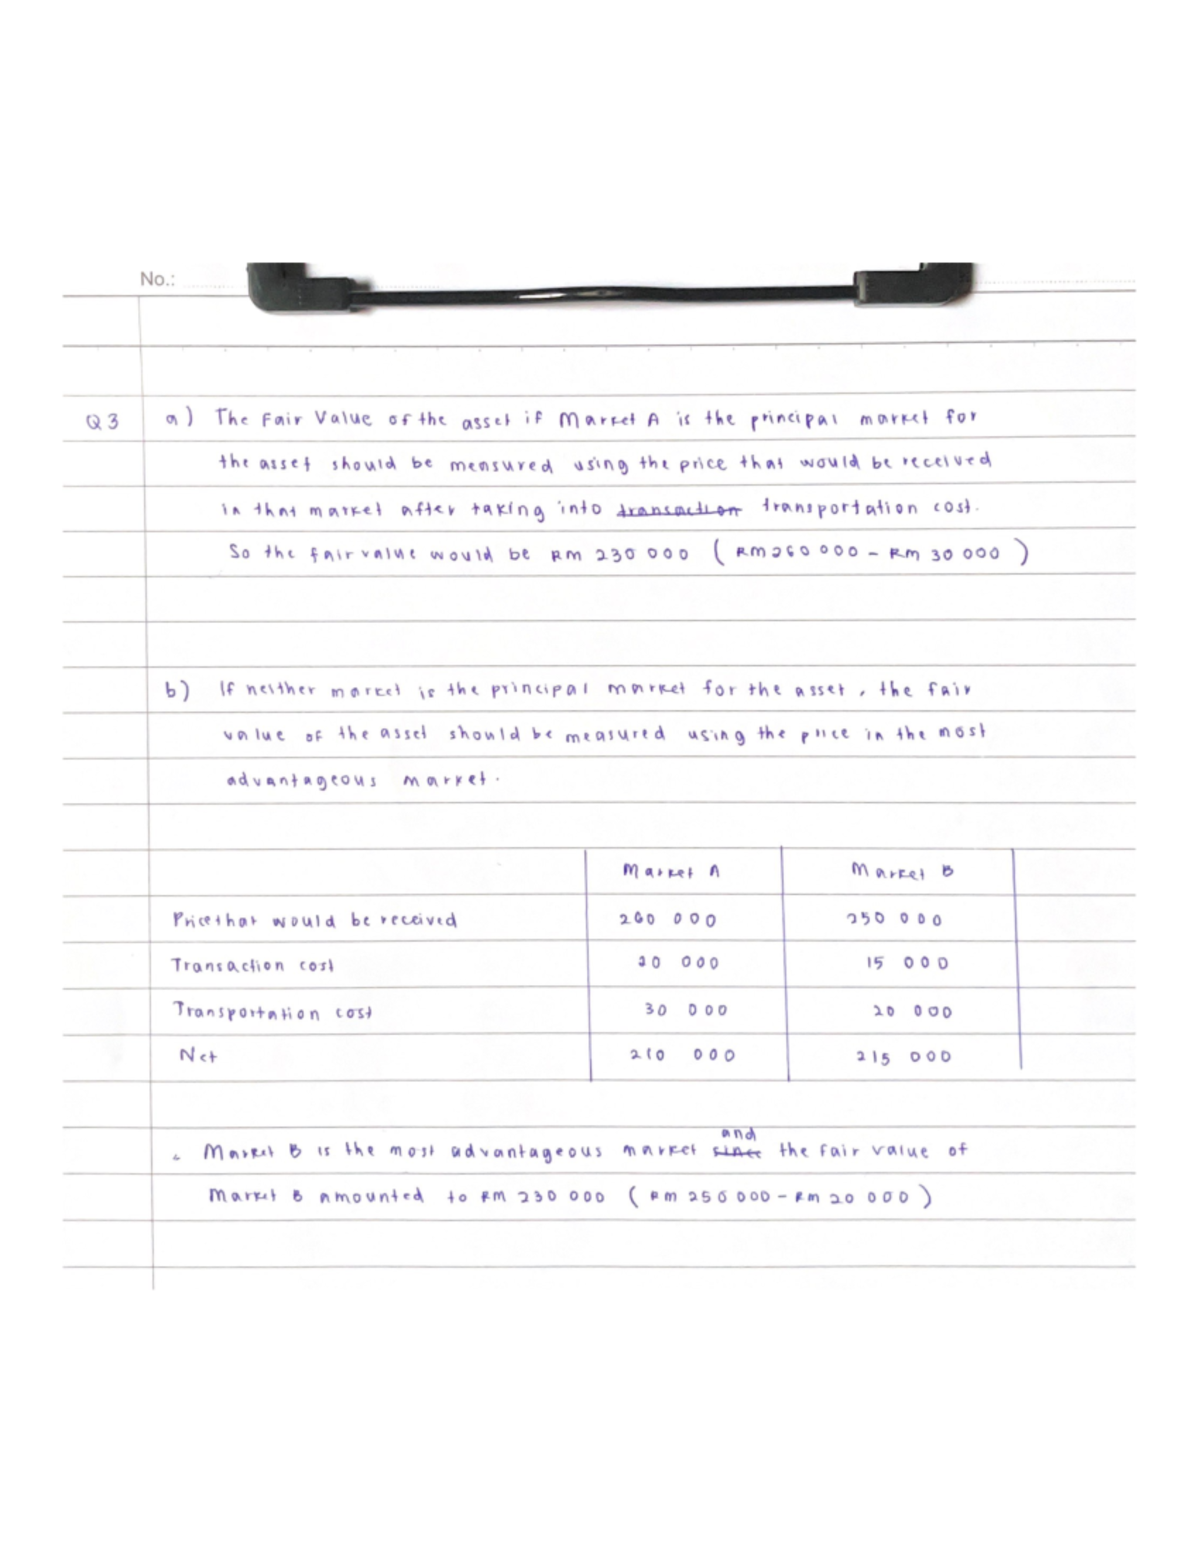 No.:
Q3 a) The Fair Value of the asset if Market A is the principal market for
the asset should be measured using the price that would be received
in that market after taking into transaction transportation cost.
So the fair value would be RM 230 000 ( RM 260 000 - RM 30 000 )
b) If neither market is the principal market for the asset, the fair
value of the asset should be measured using the price in the most
advantageous market.
Market A Market B
Price that would be received 260 000 250 000
Transaction cost 20 000 15 000
Transportation cost 30 000 20 000
Net 210 000 215 000
and
Market B is the most advantageous market since the fair value of
Market B amounted to RM 230 000 ( RM 250 000 - RM 20 000 )